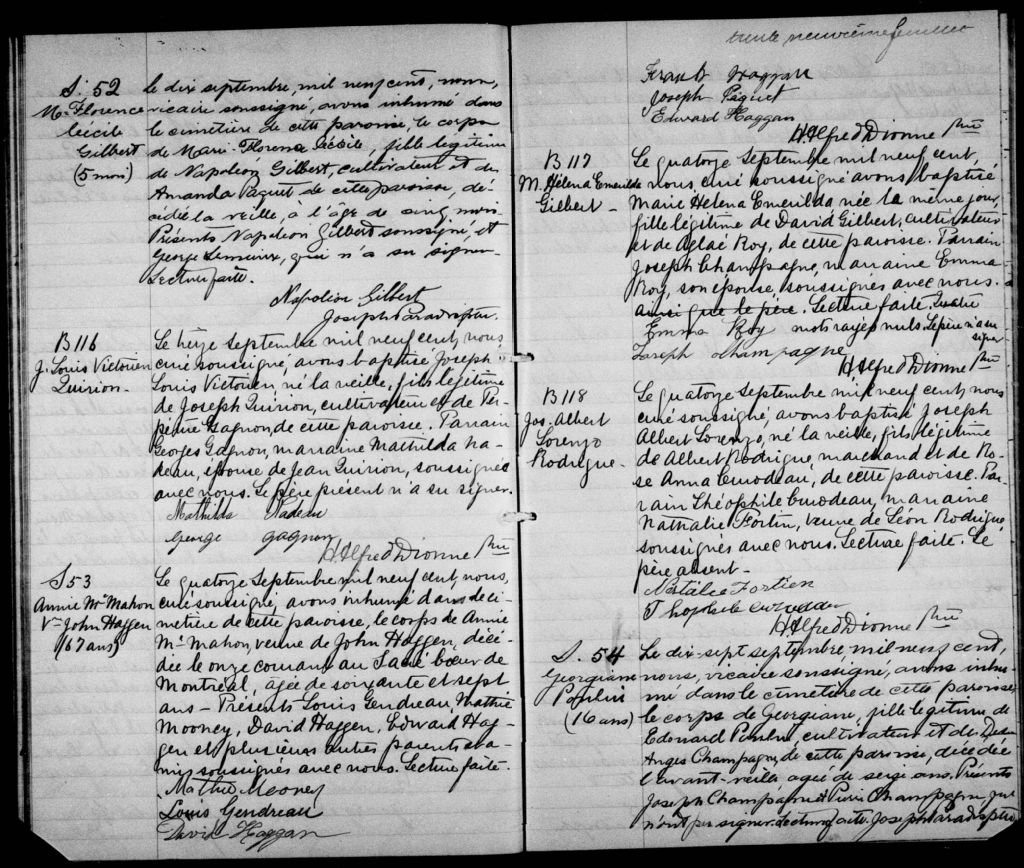 S. 52
M. Florence
Cécile
Gilbert
(5 mois)
Le dix septembre, mil neuf cent, nous,
vicaire soussigné, avons inhumé dans
le cimetière de cette paroisse, le corps
de Marie-Florence Cécile, fille légitime
de Napoléon Gilbert, cultivateur et de
Amanda Paquet de cette paroisse, dé-
cédée la veille, à l'âge de cinq mois.
Présents Napoléon Gilbert soussigné et
George Lemieux, qui n'a su signer.
Lecture faite.
Napoléon Gilbert
Joseph Paradis ptre.
B 116
J. Louis Victorien
Quirion.
Le treize septembre mil neuf cent, nous
curé soussigné, avons baptisé Joseph
Louis Victorien, né la veille, fils légitime
de Joseph Quirion, cultivateur et de Per-
pétue Gagnon, de cette paroisse. Parrain
Georges Gagnon, marraine Mathilda Na-
deau, épouse de Jean Quirion, soussignés
avec nous. Le père présent n'a su signer.
Mathilda Nadeau
George gagnon
H. Alfred Dionne Ptre
S 53
Annie Mc Mahon
Ve John Haggen
(67 ans)
Le quatorze Septembre mil neuf cent, nous,
curé soussigné, avons inhumé dans le ci-
metière de cette paroisse, le corps de Annie
Mc Mahon, veuve de John Haggen, décé-
dée le onze courant au Sacré Cœur de
Montréal, âgée de soixante et sept
ans - Présents Louis Gendreau Mathie
Mooney, David Haggen, Edward Hag-
gen et plusieurs autres parents et a-
mis soussignés avec nous. Lecture faite.
Mathie Mooney
Louis Gendreau
David Haggan
trente neuvième feuillet
Frank Haggan
Joseph Paquet
Edward Haggan
H. Alfred Dionne Ptre
B 117
M. Hélèna Emerilda
Gilbert -
Le quatorze septembre mil neuf cent,
nous, curé soussigné avons baptisé
Marie Helena Emerilda née le même jour,
fille légitime de David Gilbert, cultivateur
et de Aglaé Roy, de cette paroisse. Parrain
Joseph Champagne, marraine Emma
Roy, son épouse, soussignés avec nous.
ainsi que le père. Lecture faite. Quatre
Emma Roy mots rayés nuls. Le père n'a su
signer
Joseph Champagne
H. Alfred Dionne Ptre
B 118
Jos. Albert
Lorenzo
Rodrigue.
Le quatorze Septembre mil neuf cent, nous
curé soussigné, avons baptisé Joseph
Albert Lorenzo, né la veille, fils légitime
de Albert Rodrigue, marchand et de Ro-
se Anna Cuvodeau, de cette paroisse. Par-
rain Théophile Cuvodeau, marraine
Nathalie Fortin, veuve de Léon Rodrigue
soussignés avec nous. Lecture faite. Le
père absent -
Natalie Fortien
H. Alfred Dionne Ptre
S. 54
Georgiane
Poulin
(16 ans)
Le dix-sept septembre mil neuf cent,
nous, vicaire soussigné, avons inhu-
mé dans le cimetière de cette paroisse,
le corps de Georgiane, fille légitime de
Edouard Poulin, cultivateur et de
Anges Champagne, de cette paroisse, décédée
l'avant-veille agée de seize ans. Présents
Joseph Champagne & Champagne qui
n'ont pu signer. Lecture faite. Joseph Paradis ptre